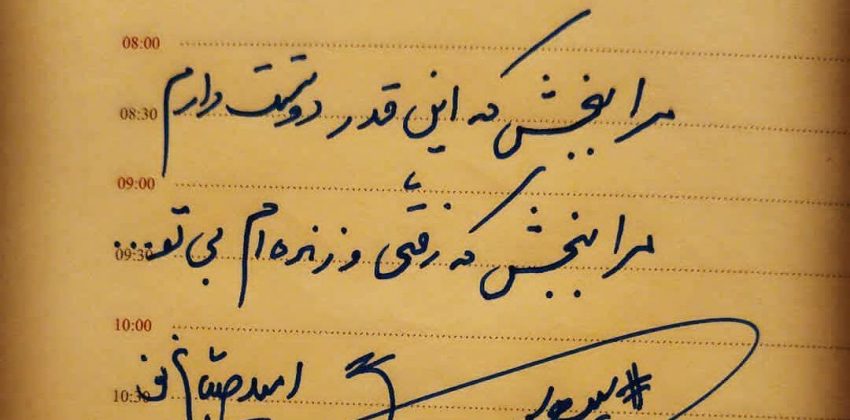 08:00
مرا ببخش که این قدر دوستت دارم
08:30
09:00
مرا ببخش که رفتی و زنده ام بی تو...
09:30
10:00
#
امید صباغ نو
10:30